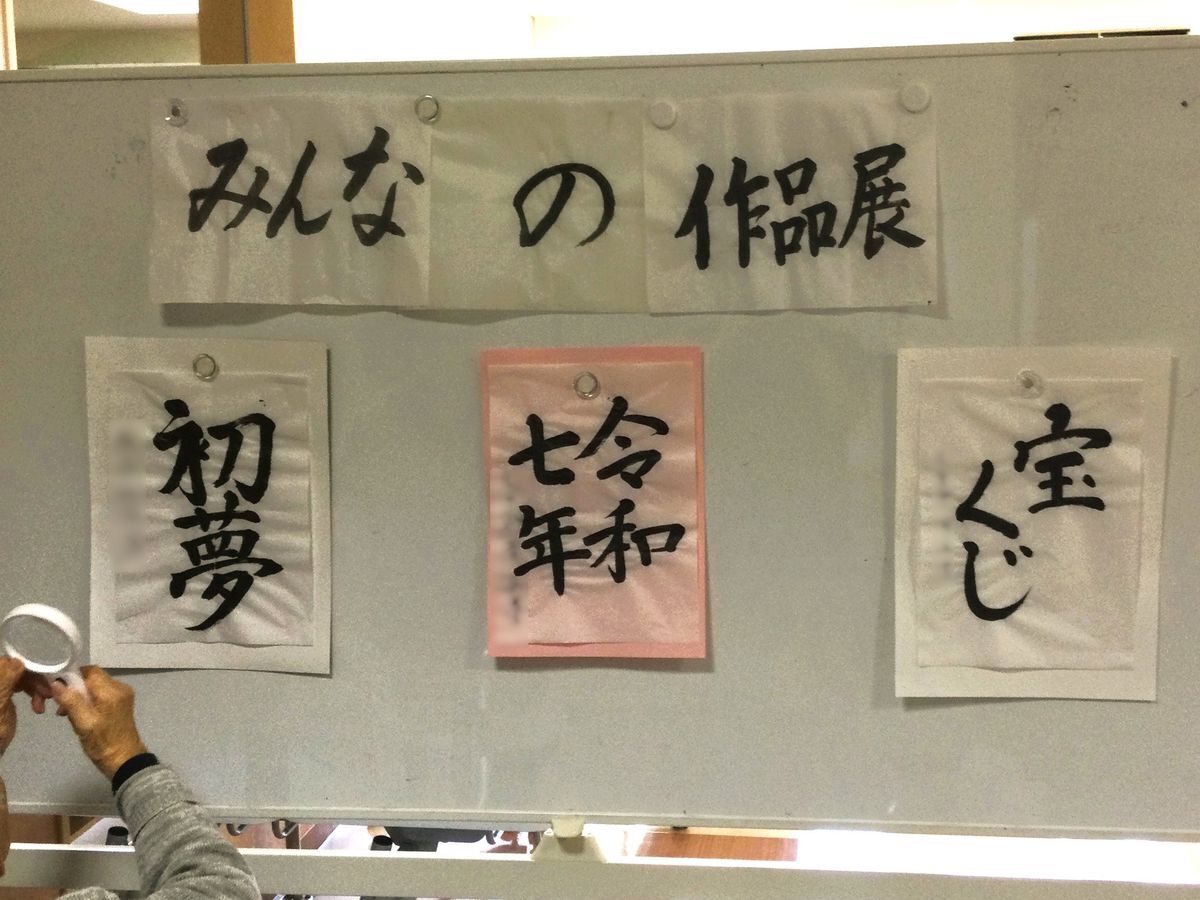 みんなの作品展
初夢
令和
七年
宝
くじ